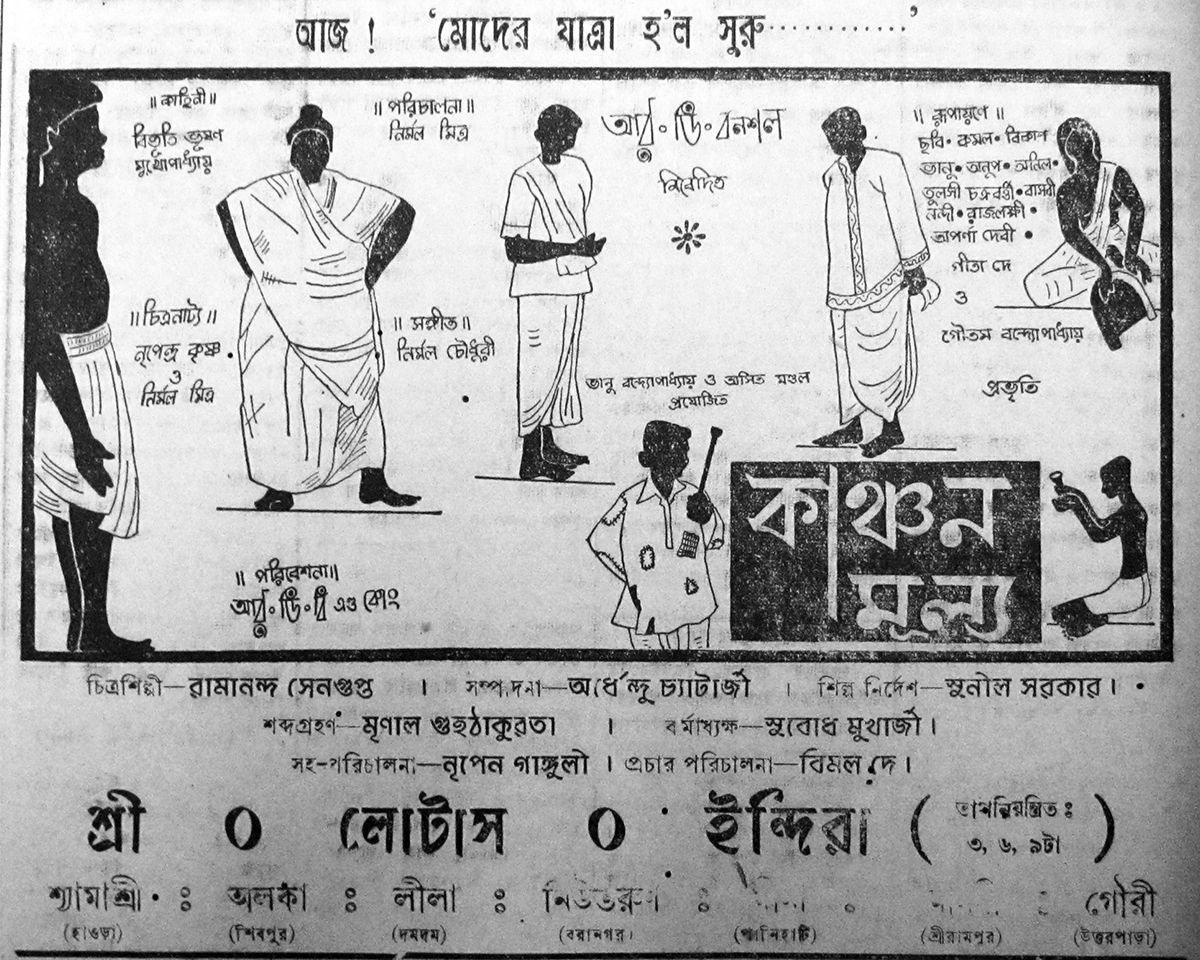 আজ! 'মোদের যাত্রা হ'ল সুরু............'
॥ কাহিনী ॥
বিভূতি ভূষণ
মুখোপাধ্যায়
॥ পরিচালনা ॥
নির্মল মিত্র
আর্‌• ডি• বনশল
নিবেদিত
॥ রূপায়ণে ॥
ছবি• কমল• বিকাশ
ভানু• অনুপ• অনিল•
তুলসী চক্রবর্ত্তী• বাসবী
নন্দী• রাজলক্ষী•
অপর্ণা দেবী•
গীতা দে
ও
গৌতম বন্দ্যোপাধ্যায়
প্রভৃতি
॥ চিত্রনাট্য ॥
নৃপেন্দ্র কৃষ্ণ
ও
নির্মল মিত্র
॥ সঙ্গীত ॥
নির্মল চৌধুরী
ভানু বন্দ্যোপাধ্যায় ও অসিত মণ্ডল
প্রযোজিত
কাঞ্চন
মূল্য
॥ পরিবেশনা ॥
আর্‌• ডি• বি এণ্ড কোং
চিত্রশিল্পী—রামানন্দ সেনগুপ্ত । সম্পাদনা—অর্ধেন্দু চ্যাটার্জী । শিল্প নির্দেশ—সুনীল সরকার।
শব্দগ্রহণ—মৃণাল গুহঠাকুরতা । কর্মাধ্যক্ষ—সুবোধ মুখার্জী।
সহ-পরিচালনা—নৃপেন গাঙ্গুলী । প্রচার পরিচালনা—বিমল দে।
শ্রী ০ লোটাস ০ ইন্দিরা ( তাপনিয়ন্ত্রিত ঃ
৩, ৬, ৯টা )
শ্যামাশ্রী ঃ অলকা ঃ লীলা ঃ নিউতরুণ ঃ গৌরী
(হাওড়া) (শিবপুর) (দমদম) (বরানগর) (পানিহাটি) (শ্রীরামপুর) (উত্তরপাড়া)